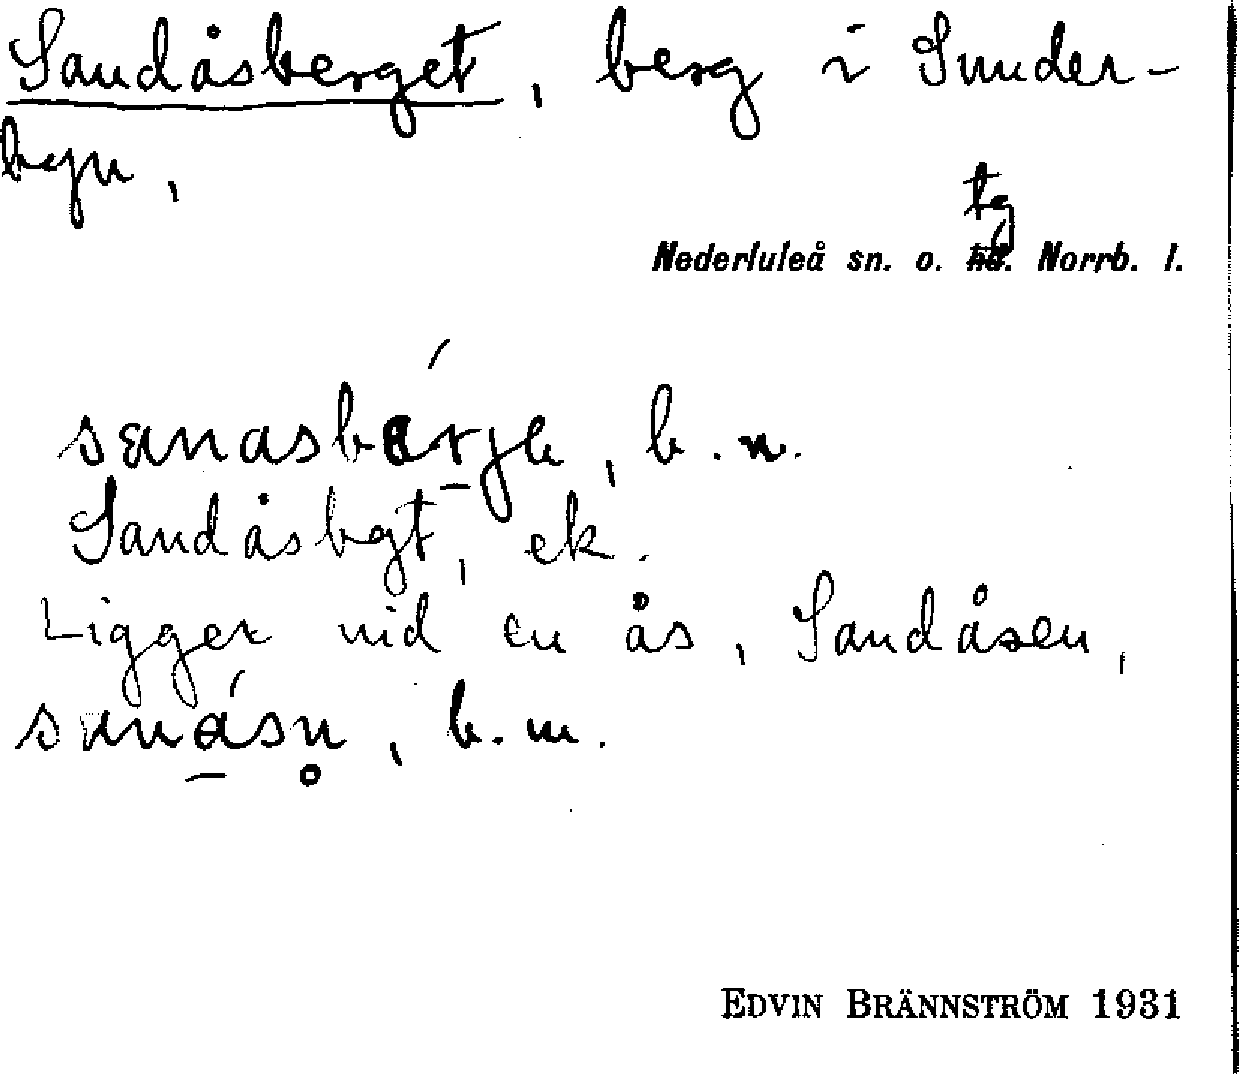 Sandåsberget, berg i Sunder-
byn,
tg
Nederluleå sn. o. hd. Norrb. l.
sanasbärje, b. n.
Sandåsbgt, ek.
Ligger vid en ås, Sandåsen,
sanåsn̥, b. m.
EDVIN BRÄNNSTRÖM 1931